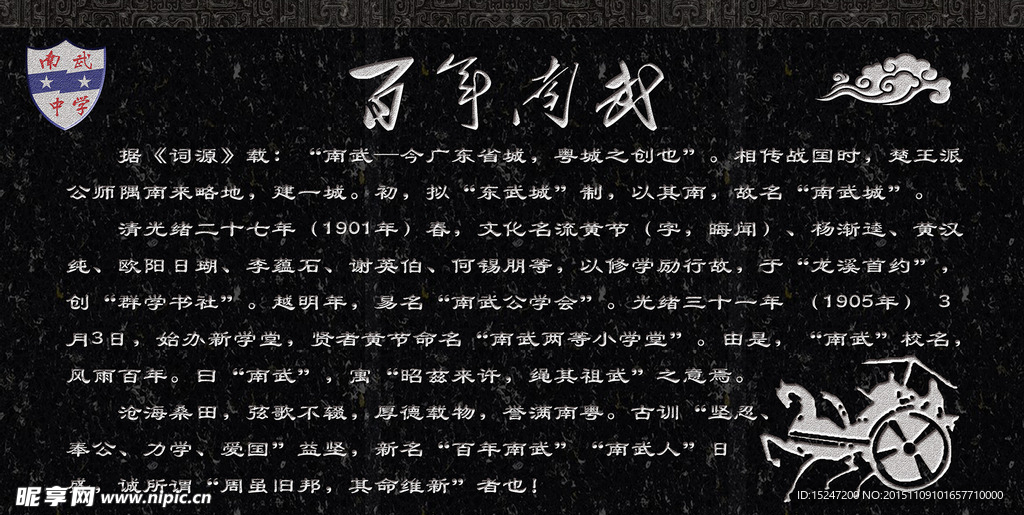 南武
中学
百年南武
据《词源》载：“南武—今广东省城，粤城之创也”。相传战国时，楚王派
公师隅南来略地，建一城。初，拟“东武城”制，以其南，故名“南武城”。
清光绪二十七年（1901年）春，文化名流黄节（字，晦闻）、杨渐逵、黄汉
纯、欧阳日瑚、李蕴石、谢英伯、何锡朋等，以修学励行故，于“龙溪首约”，
创“群学书社”。越明年，易名“南武公学会”。光绪三十一年 （1905年） 3
月3日，始办新学堂，贤者黄节命名“南武两等小学堂”。由是，“南武”校名，
风雨百年。曰“南武”，寓“昭兹来许，绳其祖武”之意焉。
沧海桑田，弦歌不辍，厚德载物，誉满南粤。古训“坚忍、
奉公、力学、爱国”益坚，新名“百年南武”“南武人”日
盛，诚所谓“周虽旧邦，其命维新”者也！
昵享网 www.nipic.cn
ID:15247200 NO:20151109101657710000